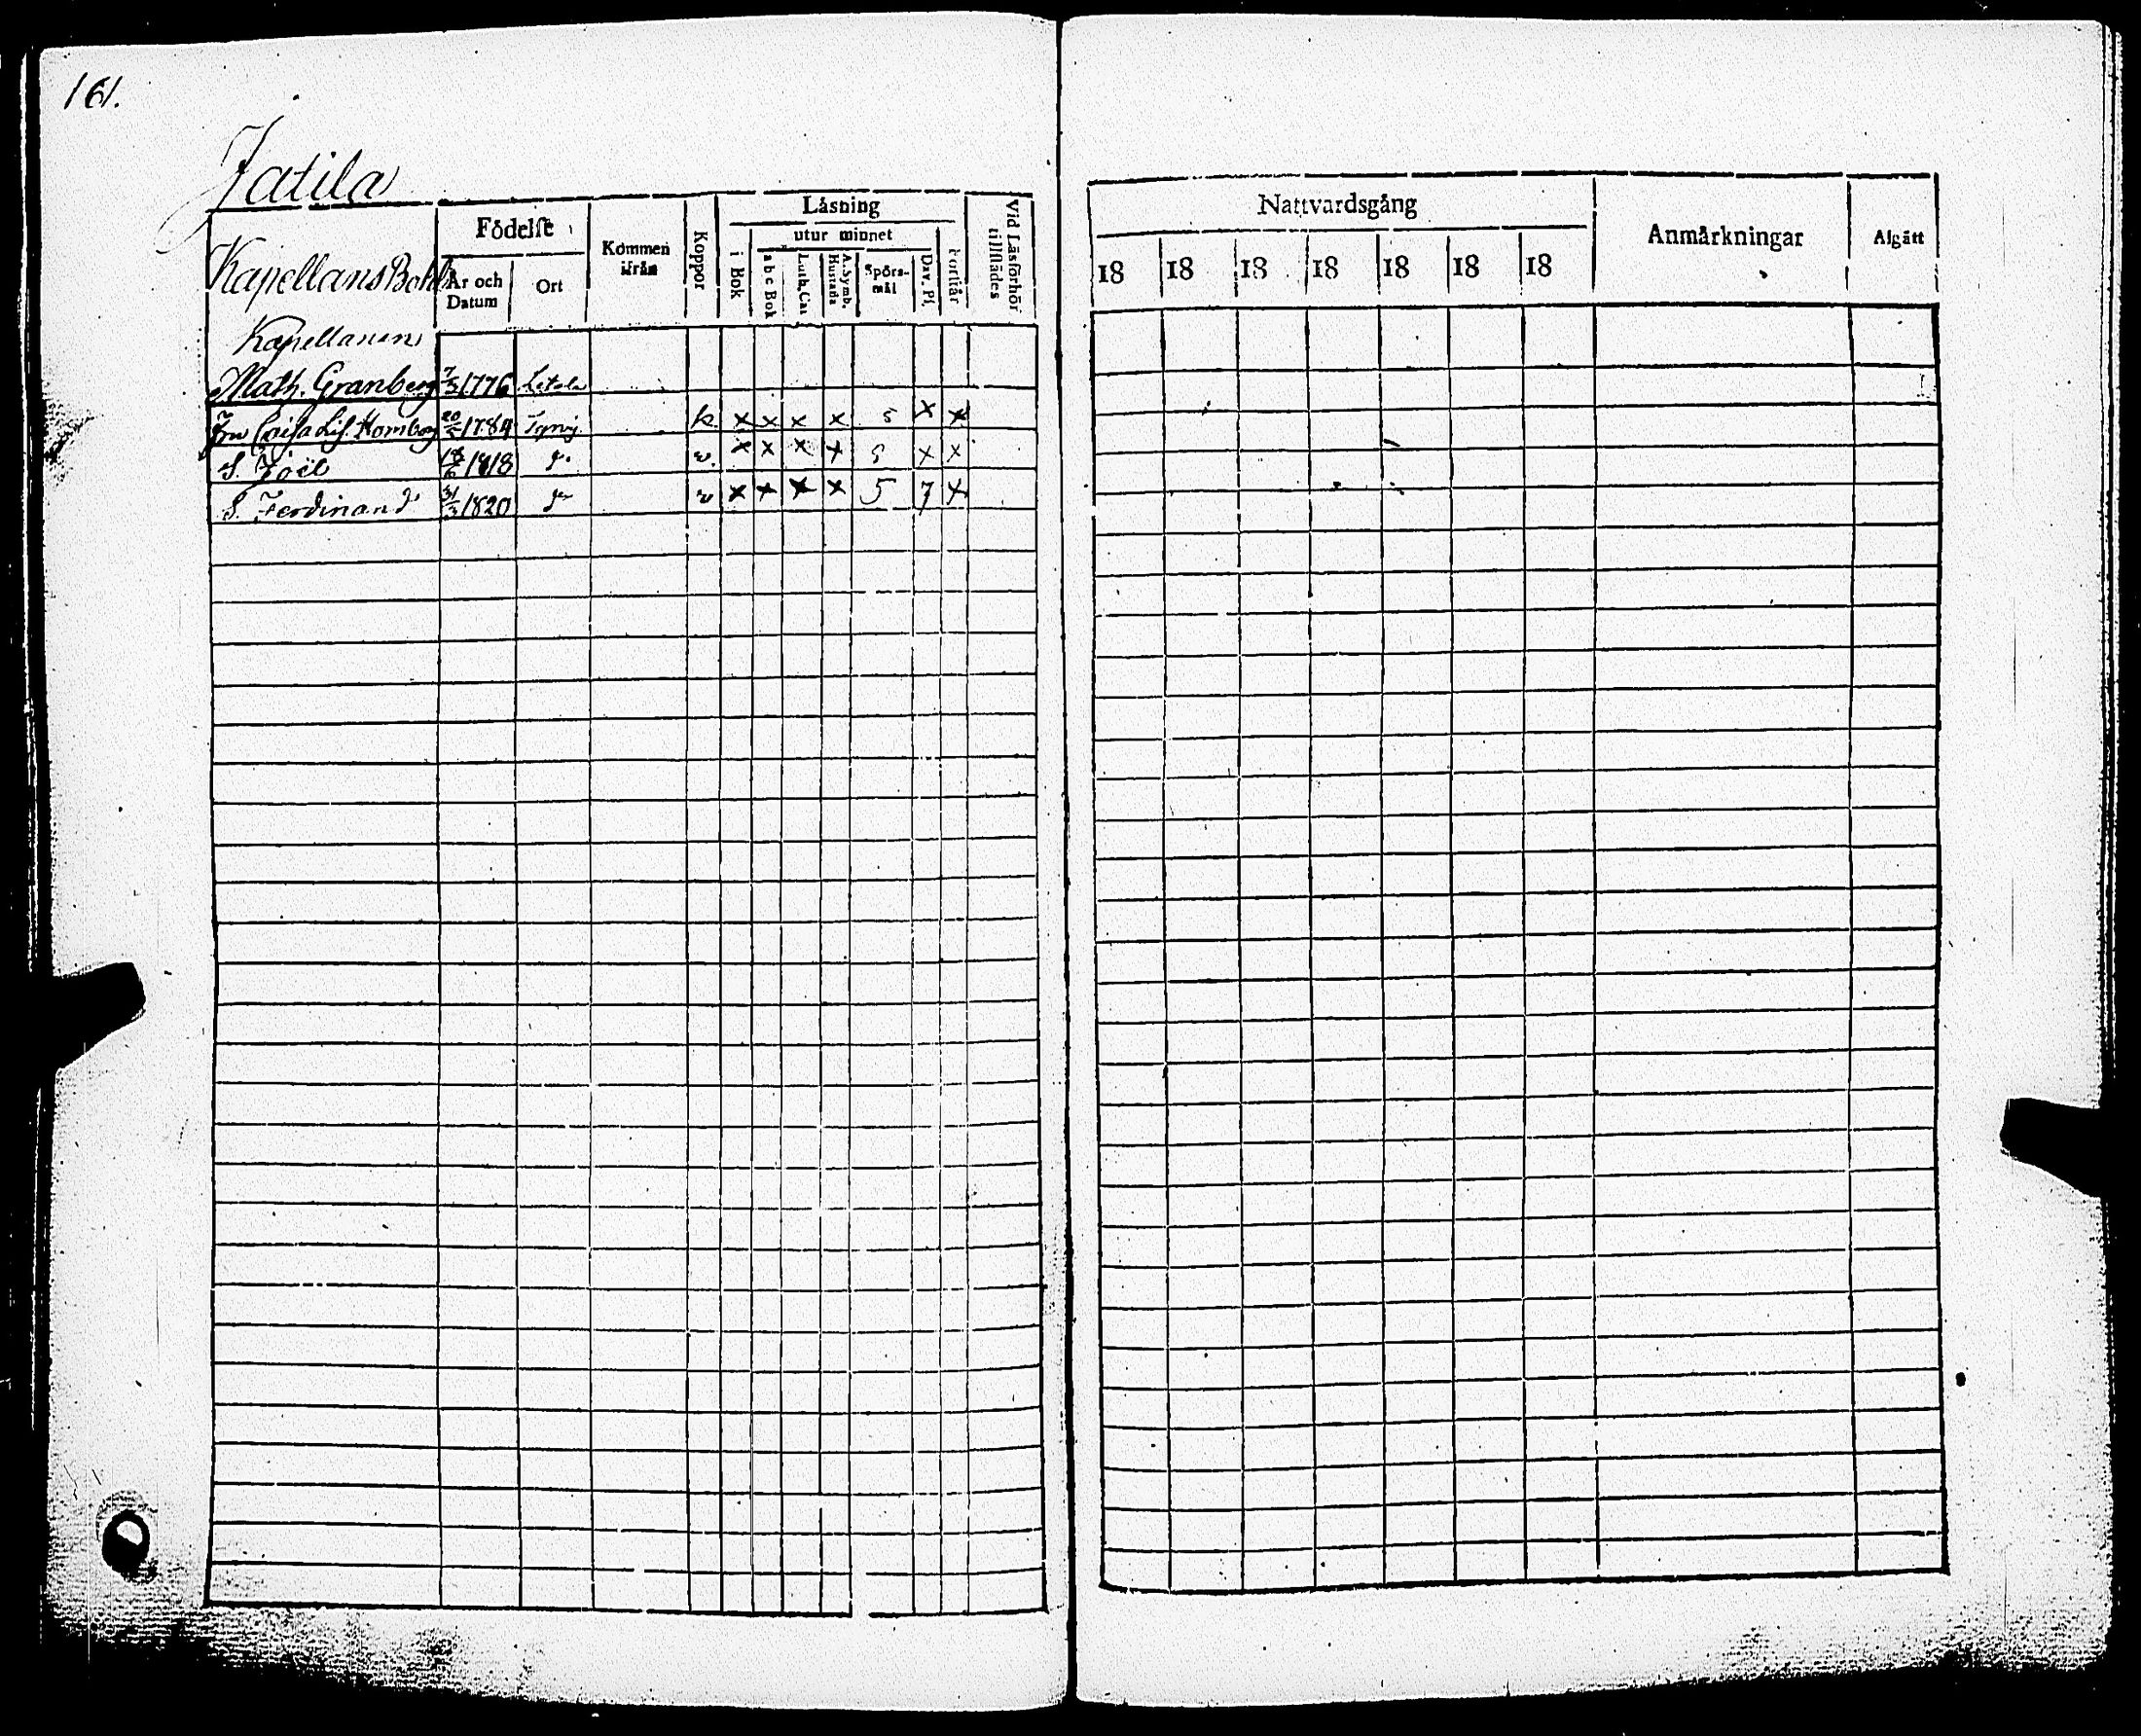 161.
Jatila
Kapellans Bohl
Födelse
År och Datum
Ort
Kommen ifrån
Koppor
Läsning
i Bok
utur minnet
a b c Bok
Luth. Cat
A. Symb. Hustafla
Spörsmål
Dav. Ps.
Förstår
Vid Läsförhör tillstädes
Nattvardsgång
18 18 18 18 18 18 18
Anmärkningar
Afgått
Kapellanen
Math. Granberg 7/3 1776 Letala
Fru Caisa Lis. Homborg 20/5 1784 k x x x x 5 x x
S. Joel 18/6 1818 do v. x x x x 5 x x
S. Ferdinand 31/3 1820 do v x x x x 5 7 x